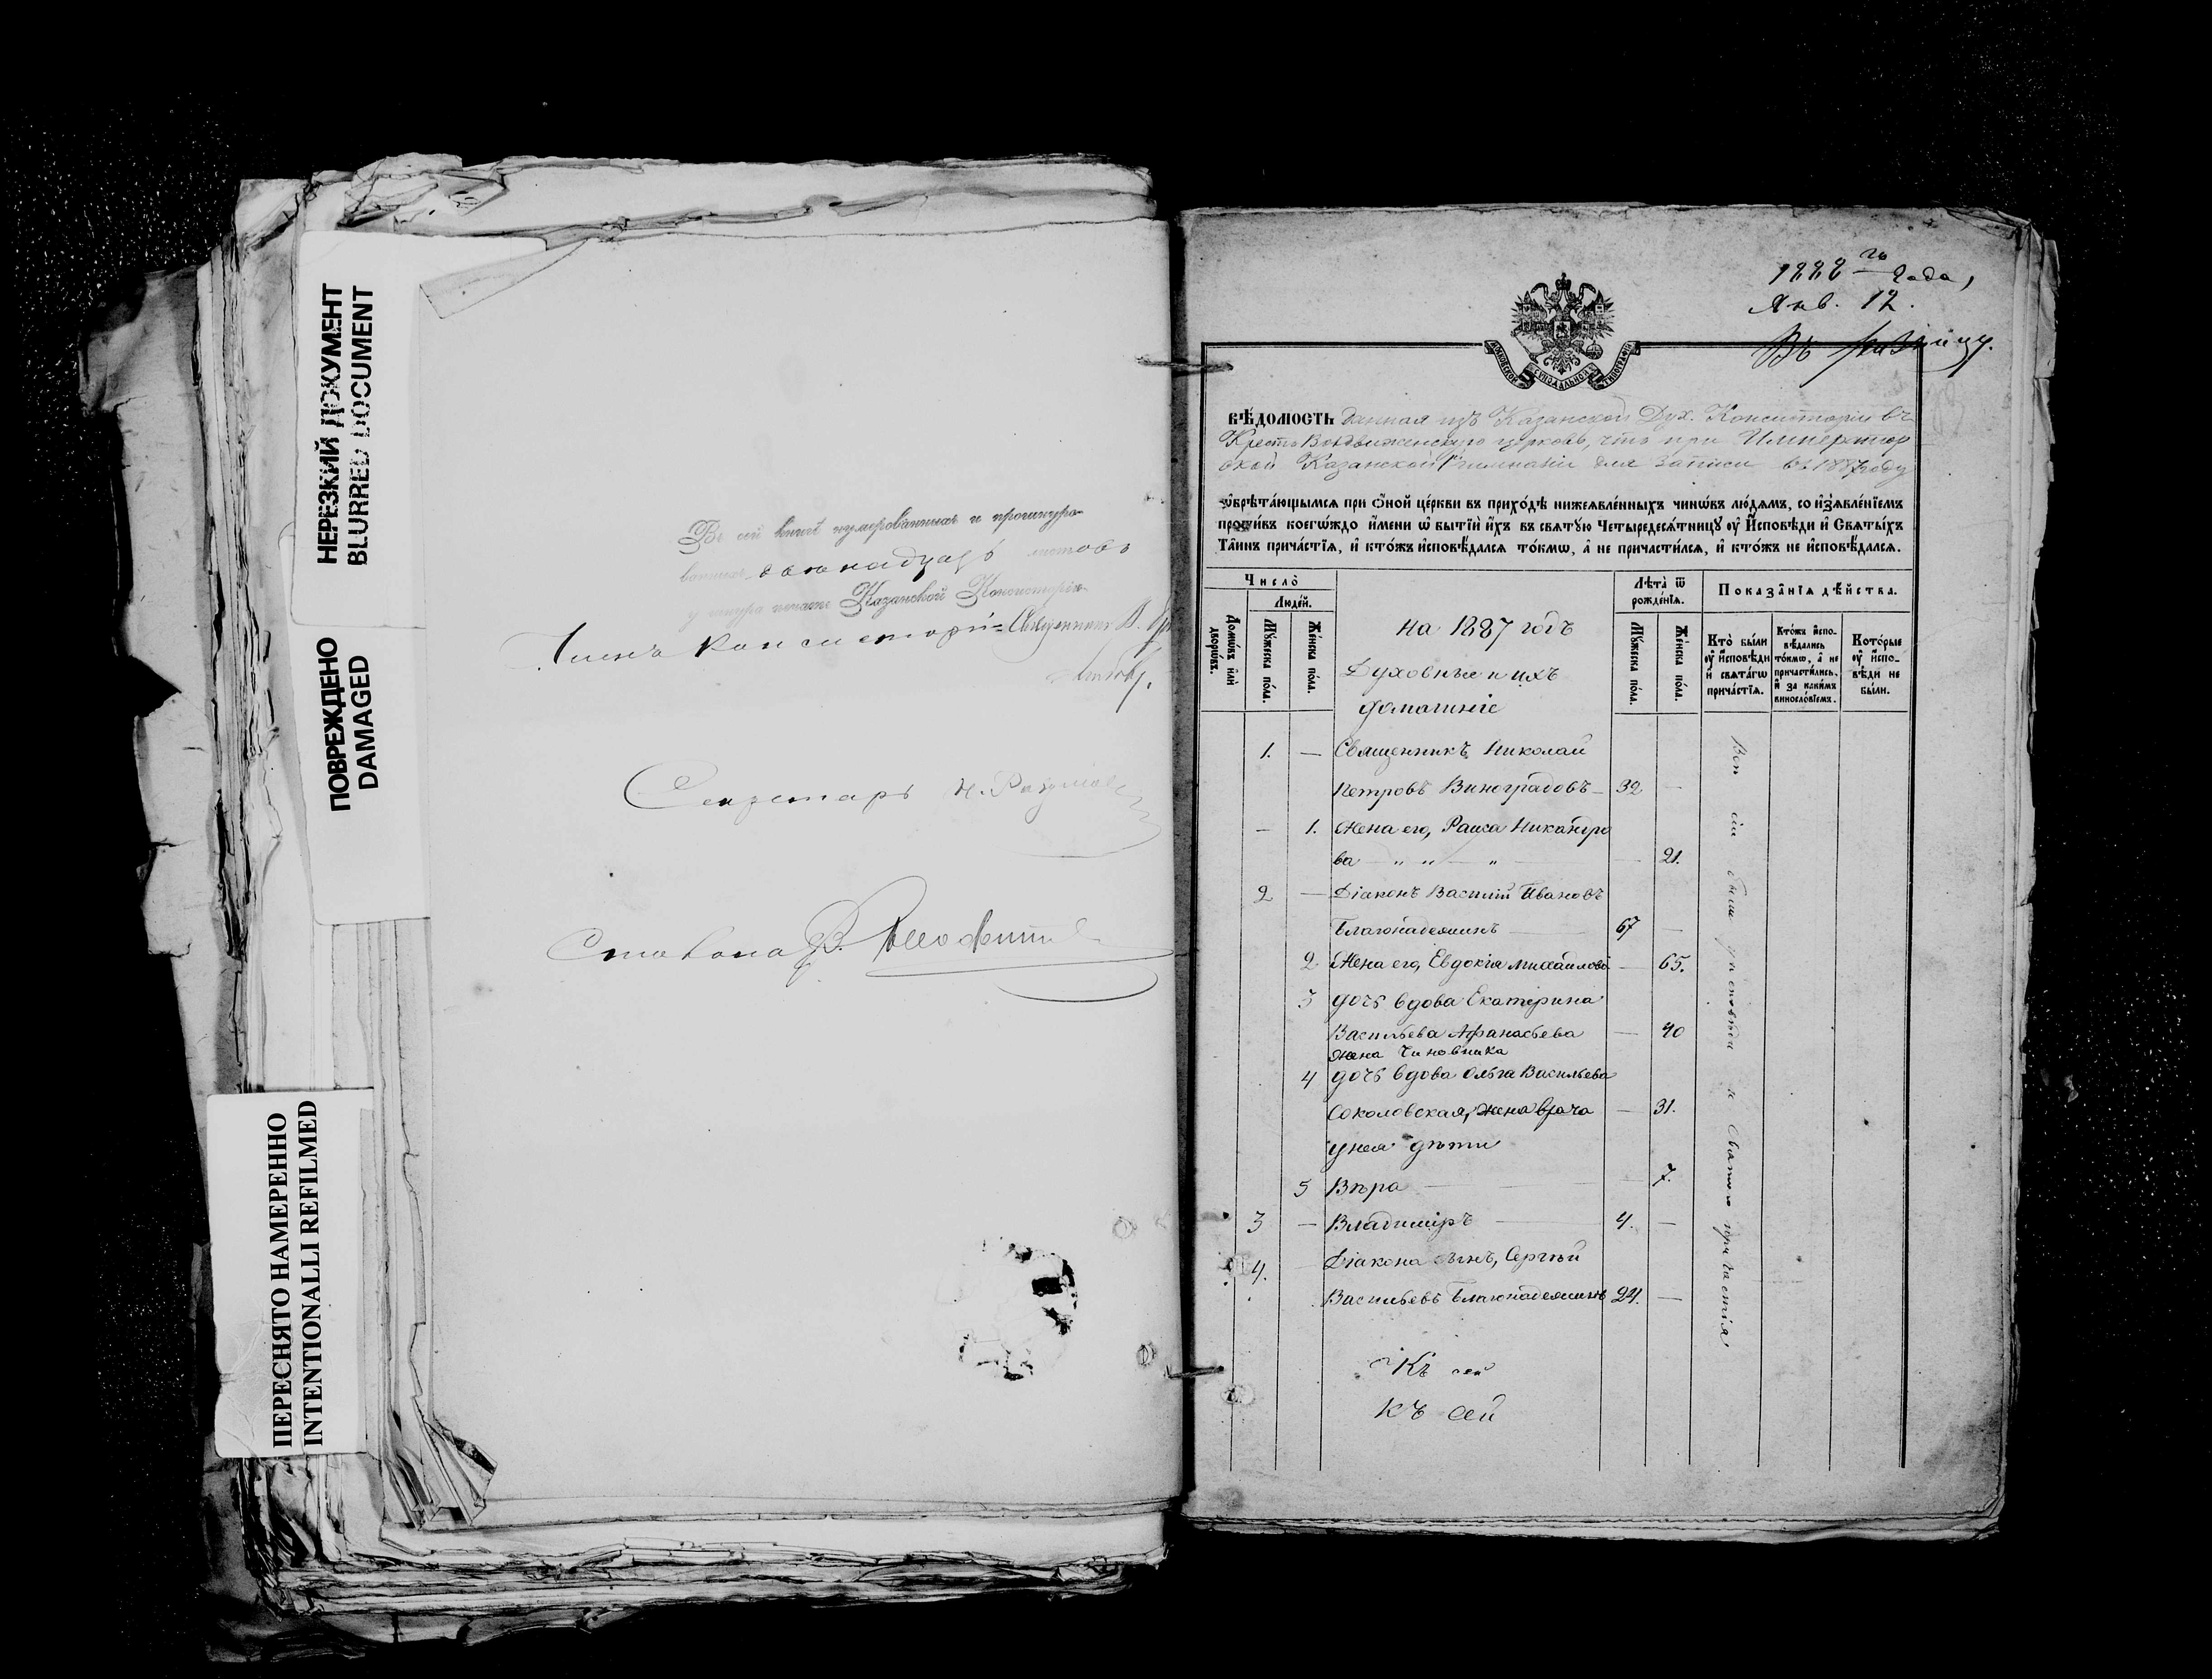 НЕРЕЗКИЙ ДОКУМЕНТ
BLURRED DOCUMENT
ПОВРЕЖДЕНО
DAMAGED
ПЕРЕСНЯТО НАМЕРЕННО
INTENTIONALLI REFILMED
Въ сей книгѣ нумерованныхъ и прошнуро-
ванныхъ листовъ
у шнура печати Казанской Консисторіи
Членъ Консисторіи Священникъ В.
Секретарь Н.
1888 го года,
Янв. 12.
Въ
МОСКОВСКОЙ СѴНОДАЛЬНОЙ ТИПОГРАФІИ
ВѢ́ДОМОСТЬ Данная изъ Казанской Дух. Консисторіи въ
Кресто Воздвиженскую церковь, что при Император
ской Казанской 1й гимназіи для записи въ 1887 году
ѡ҆брѣта́ющымсѧ при ѻ҆́ной це́ркви въ прихо́дѣ нижеѧвле́нныхъ чинѡ́въ лю́демъ, со и҆з̾ѧвле́нїемъ
проти́въ коегѡ́ждо и҆́мени ѡ҆ бытїѝ и҆́хъ въ свѧтꙋ́ю Четыредесѧ́тницꙋ ᲂу҆ И҆сповѣ́ди и҆ Свѧты́хъ
Та̑инъ прича́стїѧ, и҆ кто́жъ и҆сповѣ́дался то́кмѡ, а҆ не причасти́лсѧ, и҆ кто́жъ не и҆сповѣ́дался.
Число̀
Люде́й.
Домѡ́въ и҆лѝ дворѡ́въ.
Мꙋ́жеска по́ла.
Же́нска по́ла.
На 1887 годъ
Духовные и ихъ
домашніе
Лѣта̀ ѿ рожде́нїѧ.
Мꙋ́жеска по́ла.
Же́нска по́ла.
Показа̑нїѧ дѣ́йства.
Кто̀ бы́ли ᲂу҆ и҆сповѣ́ди и҆ свѧта́гѡ прича́стїѧ.
Кто́жъ и҆спо-вѣ́дались то́кмѡ, а҆ не причасти́лись, и҆ за каки́мъ виносло́вїемъ.
Кото́рые ᲂу҆ и҆спо-вѣ́ди не бы́ли.
1. — Священникъ Николай
Петровъ Виноградовъ — 32 —
— 1. Жена его, Раиса Никандро
ва — „ „ — „ — — 21.
2 — Діаконъ Василій Ивановъ
Благонадеждинъ — 67 —
2 Жена его, Евдокія Михайлова — 65.
3 дочь вдова Екатерина
Васильева Афанасьева — 40
жена чиновника
4 дочь вдова Ольга Васильева
Соколовская, жена врача — 31.
у нея дѣти
5 Вѣра — — 7.
3 — Владиміръ — 4. —
4. Діакона сынъ, Сергѣй
Васильевъ Благонадеждинъ 24. —
Всѣ сіи были у исповѣди и святого причастія
Къ сей
Къ сей